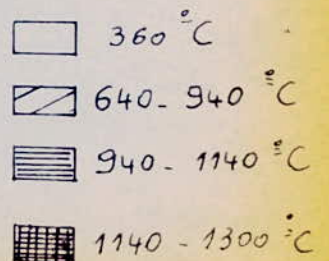 360 °C
640 - 940 °C
940 - 1140 °C
1140 - 1300 °C